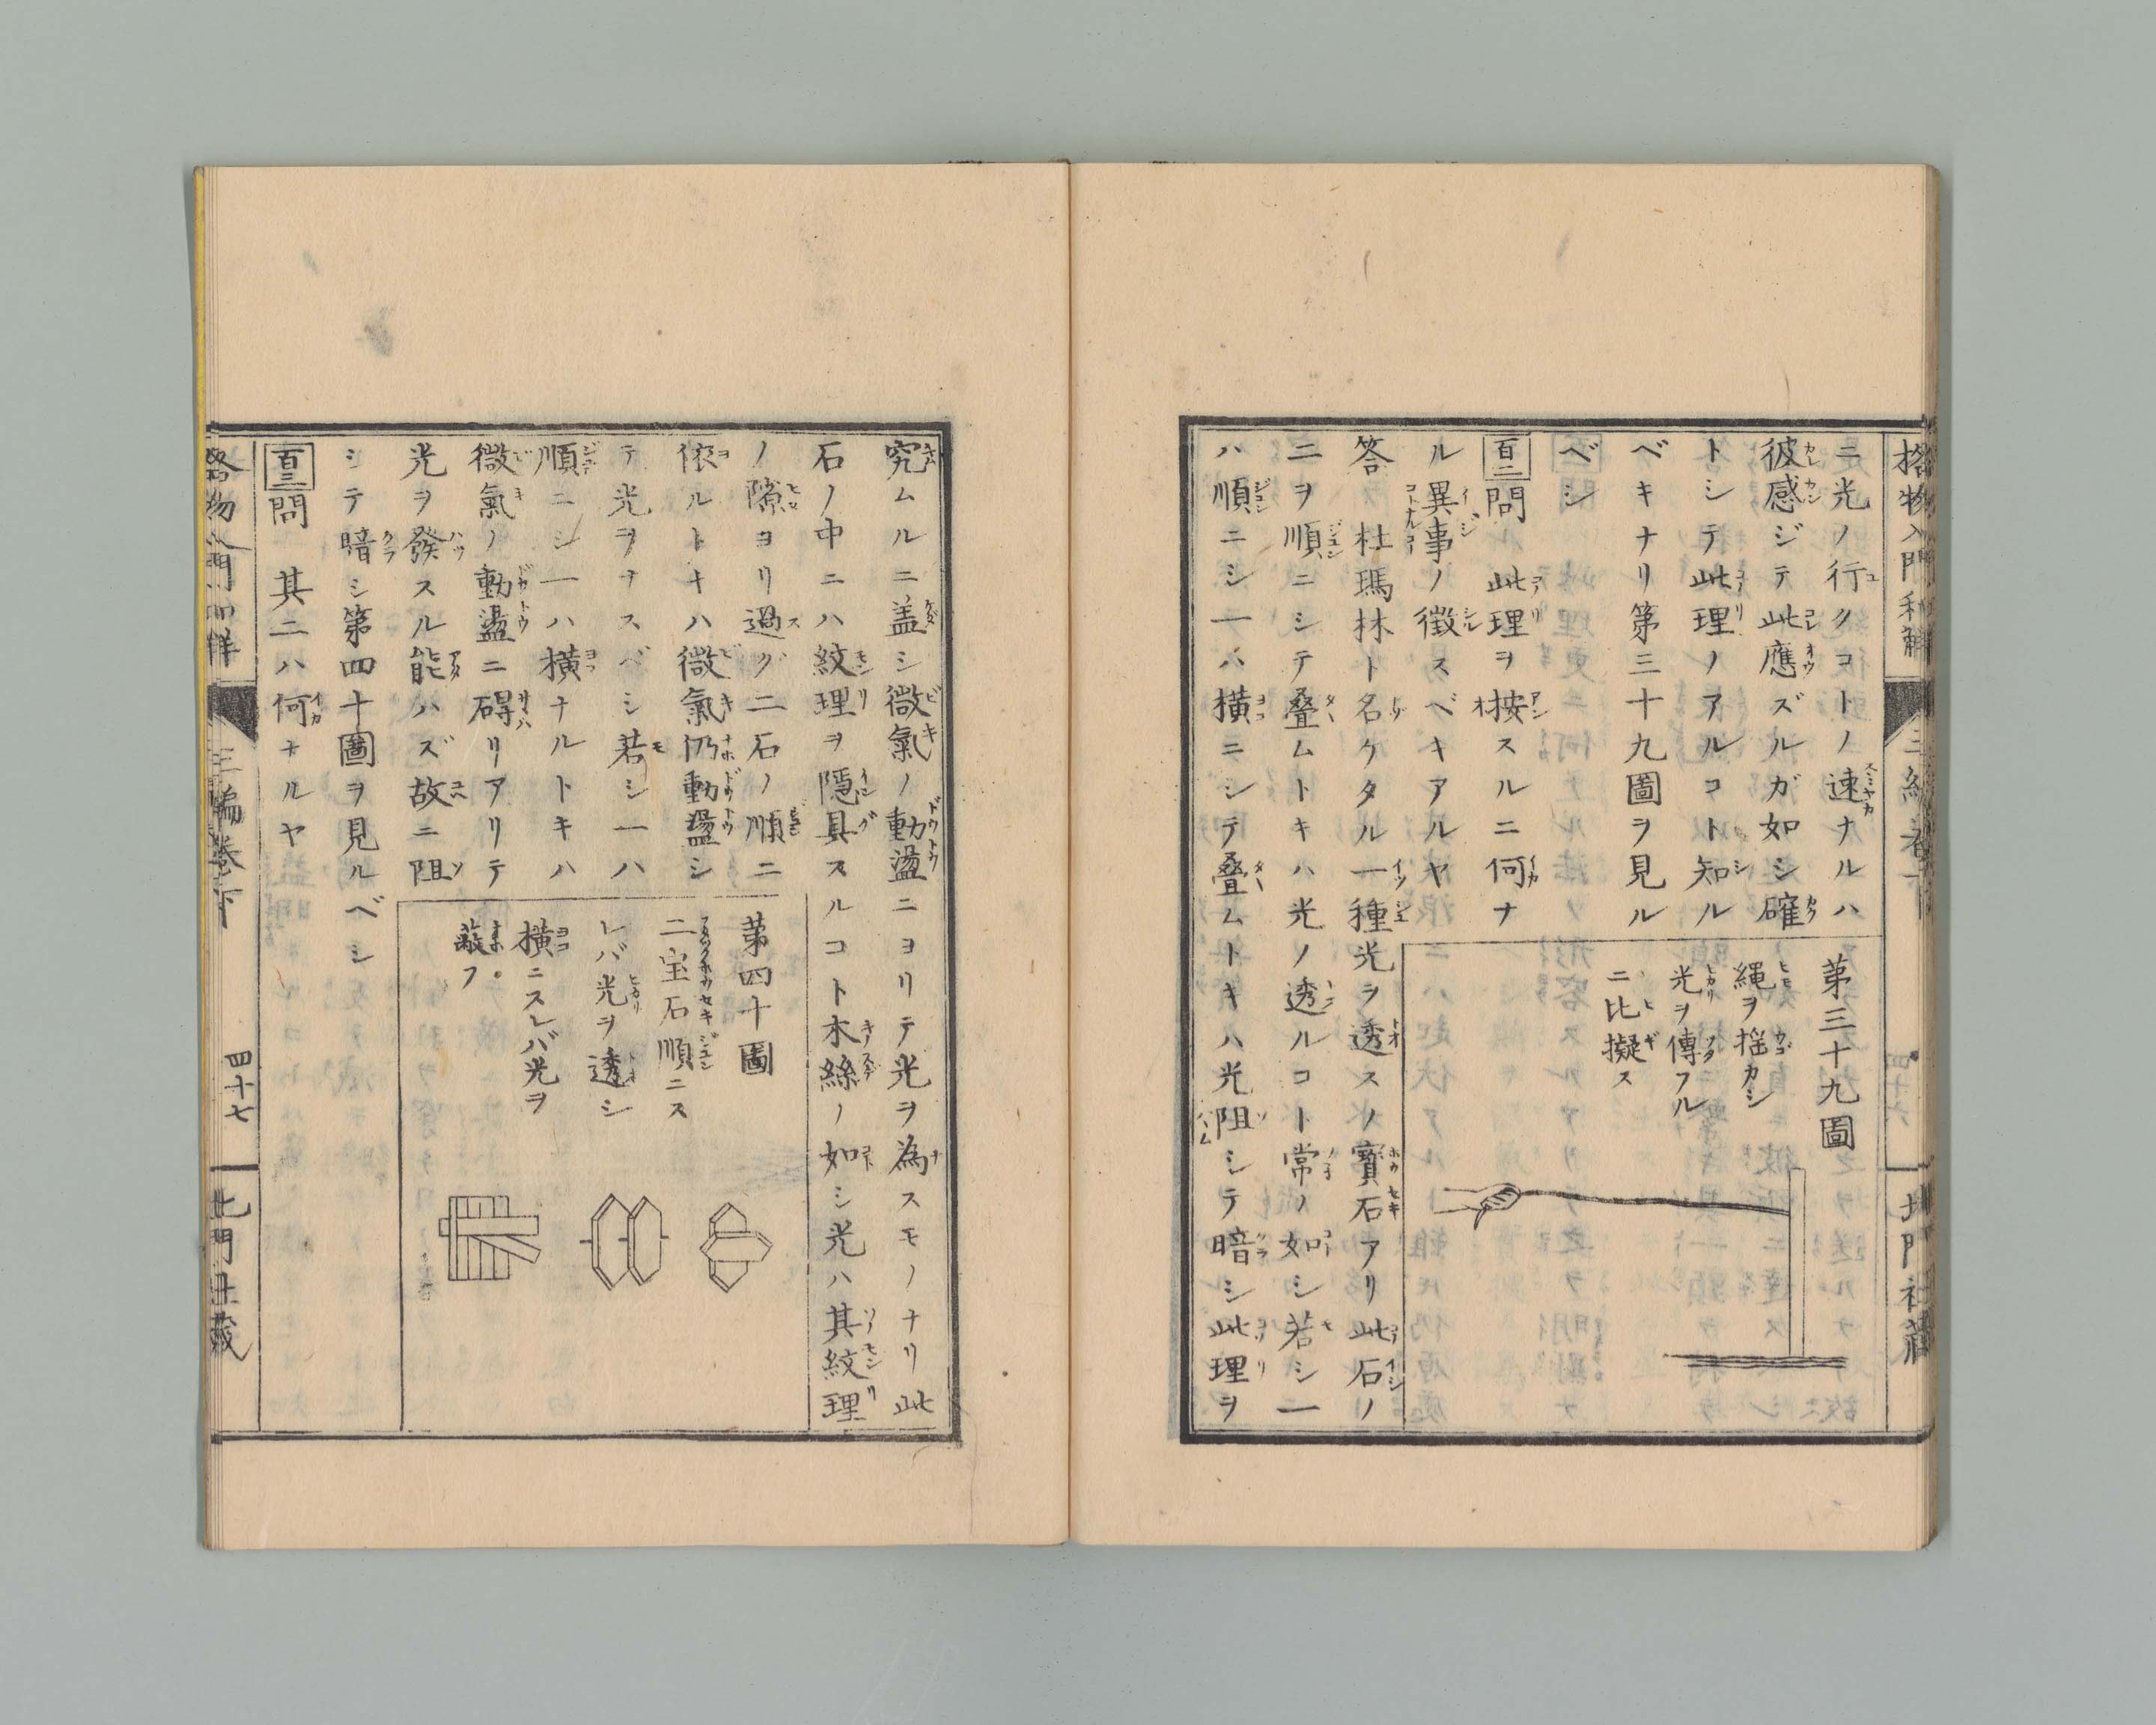 格物入門和解
三編卷下
北門社藏
ニ光ノ行クコトノ速ナルハ
彼感ジテ此應ズルガ如シ確
トシテ此理ノアルコト知ル
ベキナリ第三十九圖ヲ見ル
ベシ
第三十九圖
繩ヲ揺カシ
光ヲ傳フル
ニ比擬ス
百二問 此理ヲ按スルニ何ナ
ル異事ノ徴スベキアルヤ
答 杜瑪林ト名ケタル一種光ヲ透スノ寶石アリ此石ノ
二ヲ順ニシテ疊ムトキハ光ノ透ルコト常ノ如シ若シ一
ハ順ニシ一ハ横ニシテ疊ムトキハ光阻シテ暗シ此理ヲ
究ムルニ盖シ微氣ノ動盪ニヨリテ光ヲ為スモノナリ此
石ノ中ニハ紋理ヲ隱具スルコト木絲ノ如シ光ハ其紋理
ノ隙ヨリ過グ二石ノ順ニ
依ルトキハ微氣仍動盪シ
テ光ヲナスベシ若シ一ハ
順ニシ一ハ横ナルトキハ
微氣ノ動盪ニ碍リアリテ
光ヲ發スル能ハズ故ニ阻
シテ暗シ第四十圖ヲ見ルベシ
第四十圖
二宝石順ニス
レバ光ヲ透シ
横ニスレバ光ヲ
蔽フ
百三問 其二ハ何ナルヤ
格物入門和解
三編卷下
四十七
北門社藏